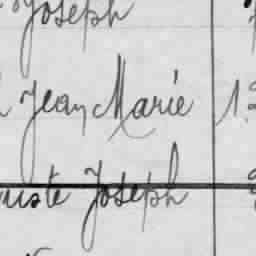 Joseph
Jean Marie 1.
Joseph